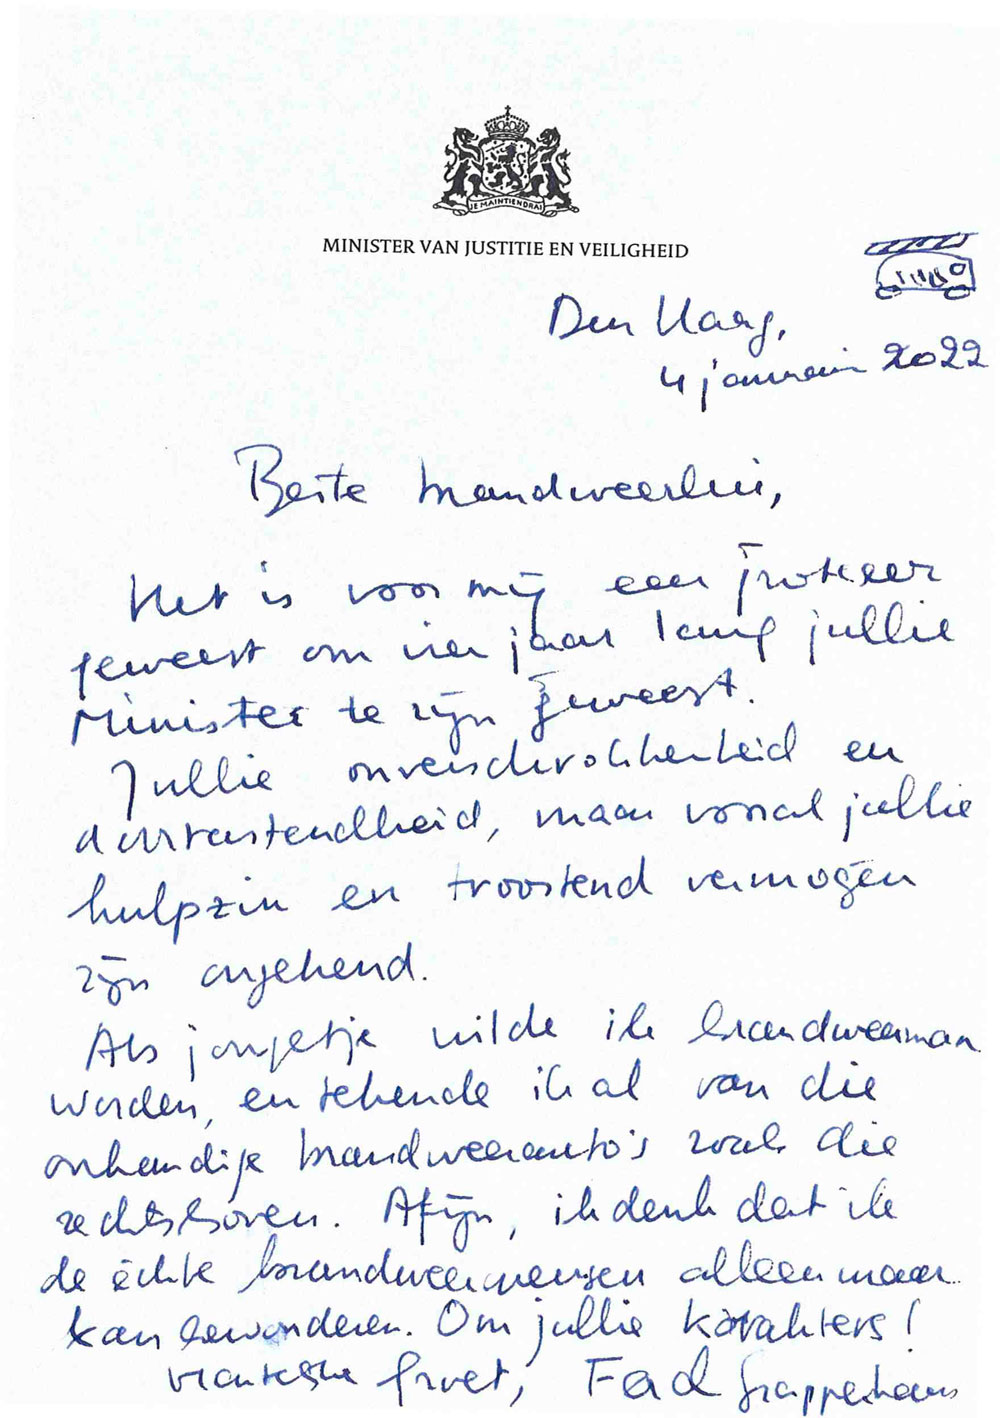 JE MAINTIENDRAI
MINISTER VAN JUSTITIE EN VEILIGHEID
Den Haag,
4 januari 2022
Beste brandweerlui,
Het is voor mij een
geweest om vier jaar lang jullie
Minister te zijn geweest.
Jullie onverschrokkenheid en
doortastendheid, maar vooral jullie
hulpzin en troostend vermogen
zijn ongekend.
Als jongetje wilde ik brandweerman
worden, en tekende ik al van die
onhandige brandweerauto's zoals die
rechtsboven. Afijn, ik denk dat ik
de échte brandweermensen alleen maar
kan bewonderen. Om jullie karakters!
Hartelijke groet, Ferd Grapperhaus